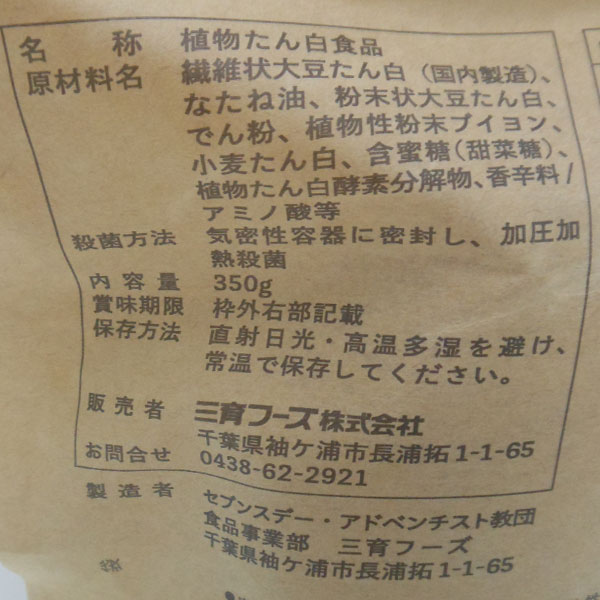 名称 植物たん白食品
原材料名 繊維状大豆たん白（国内製造）、
なたね油、粉末状大豆たん白、
でん粉、植物性粉末ブイヨン、
小麦たん白、含蜜糖（甜菜糖）、
植物たん白酵素分解物、香辛料/
アミノ酸等
殺菌方法 気密性容器に密封し、加圧加
熱殺菌
内容量 350g
賞味期限 枠外右部記載
保存方法 直射日光・高温多湿を避け、
常温で保存してください。
販売者 三育フーズ株式会社
千葉県袖ケ浦市長浦拓1-1-65
お問合せ 0438-62-2921
製造者 セブンスデー・アドベンチスト教団
食品事業部 三育フーズ
千葉県袖ケ浦市長浦拓1-1-65